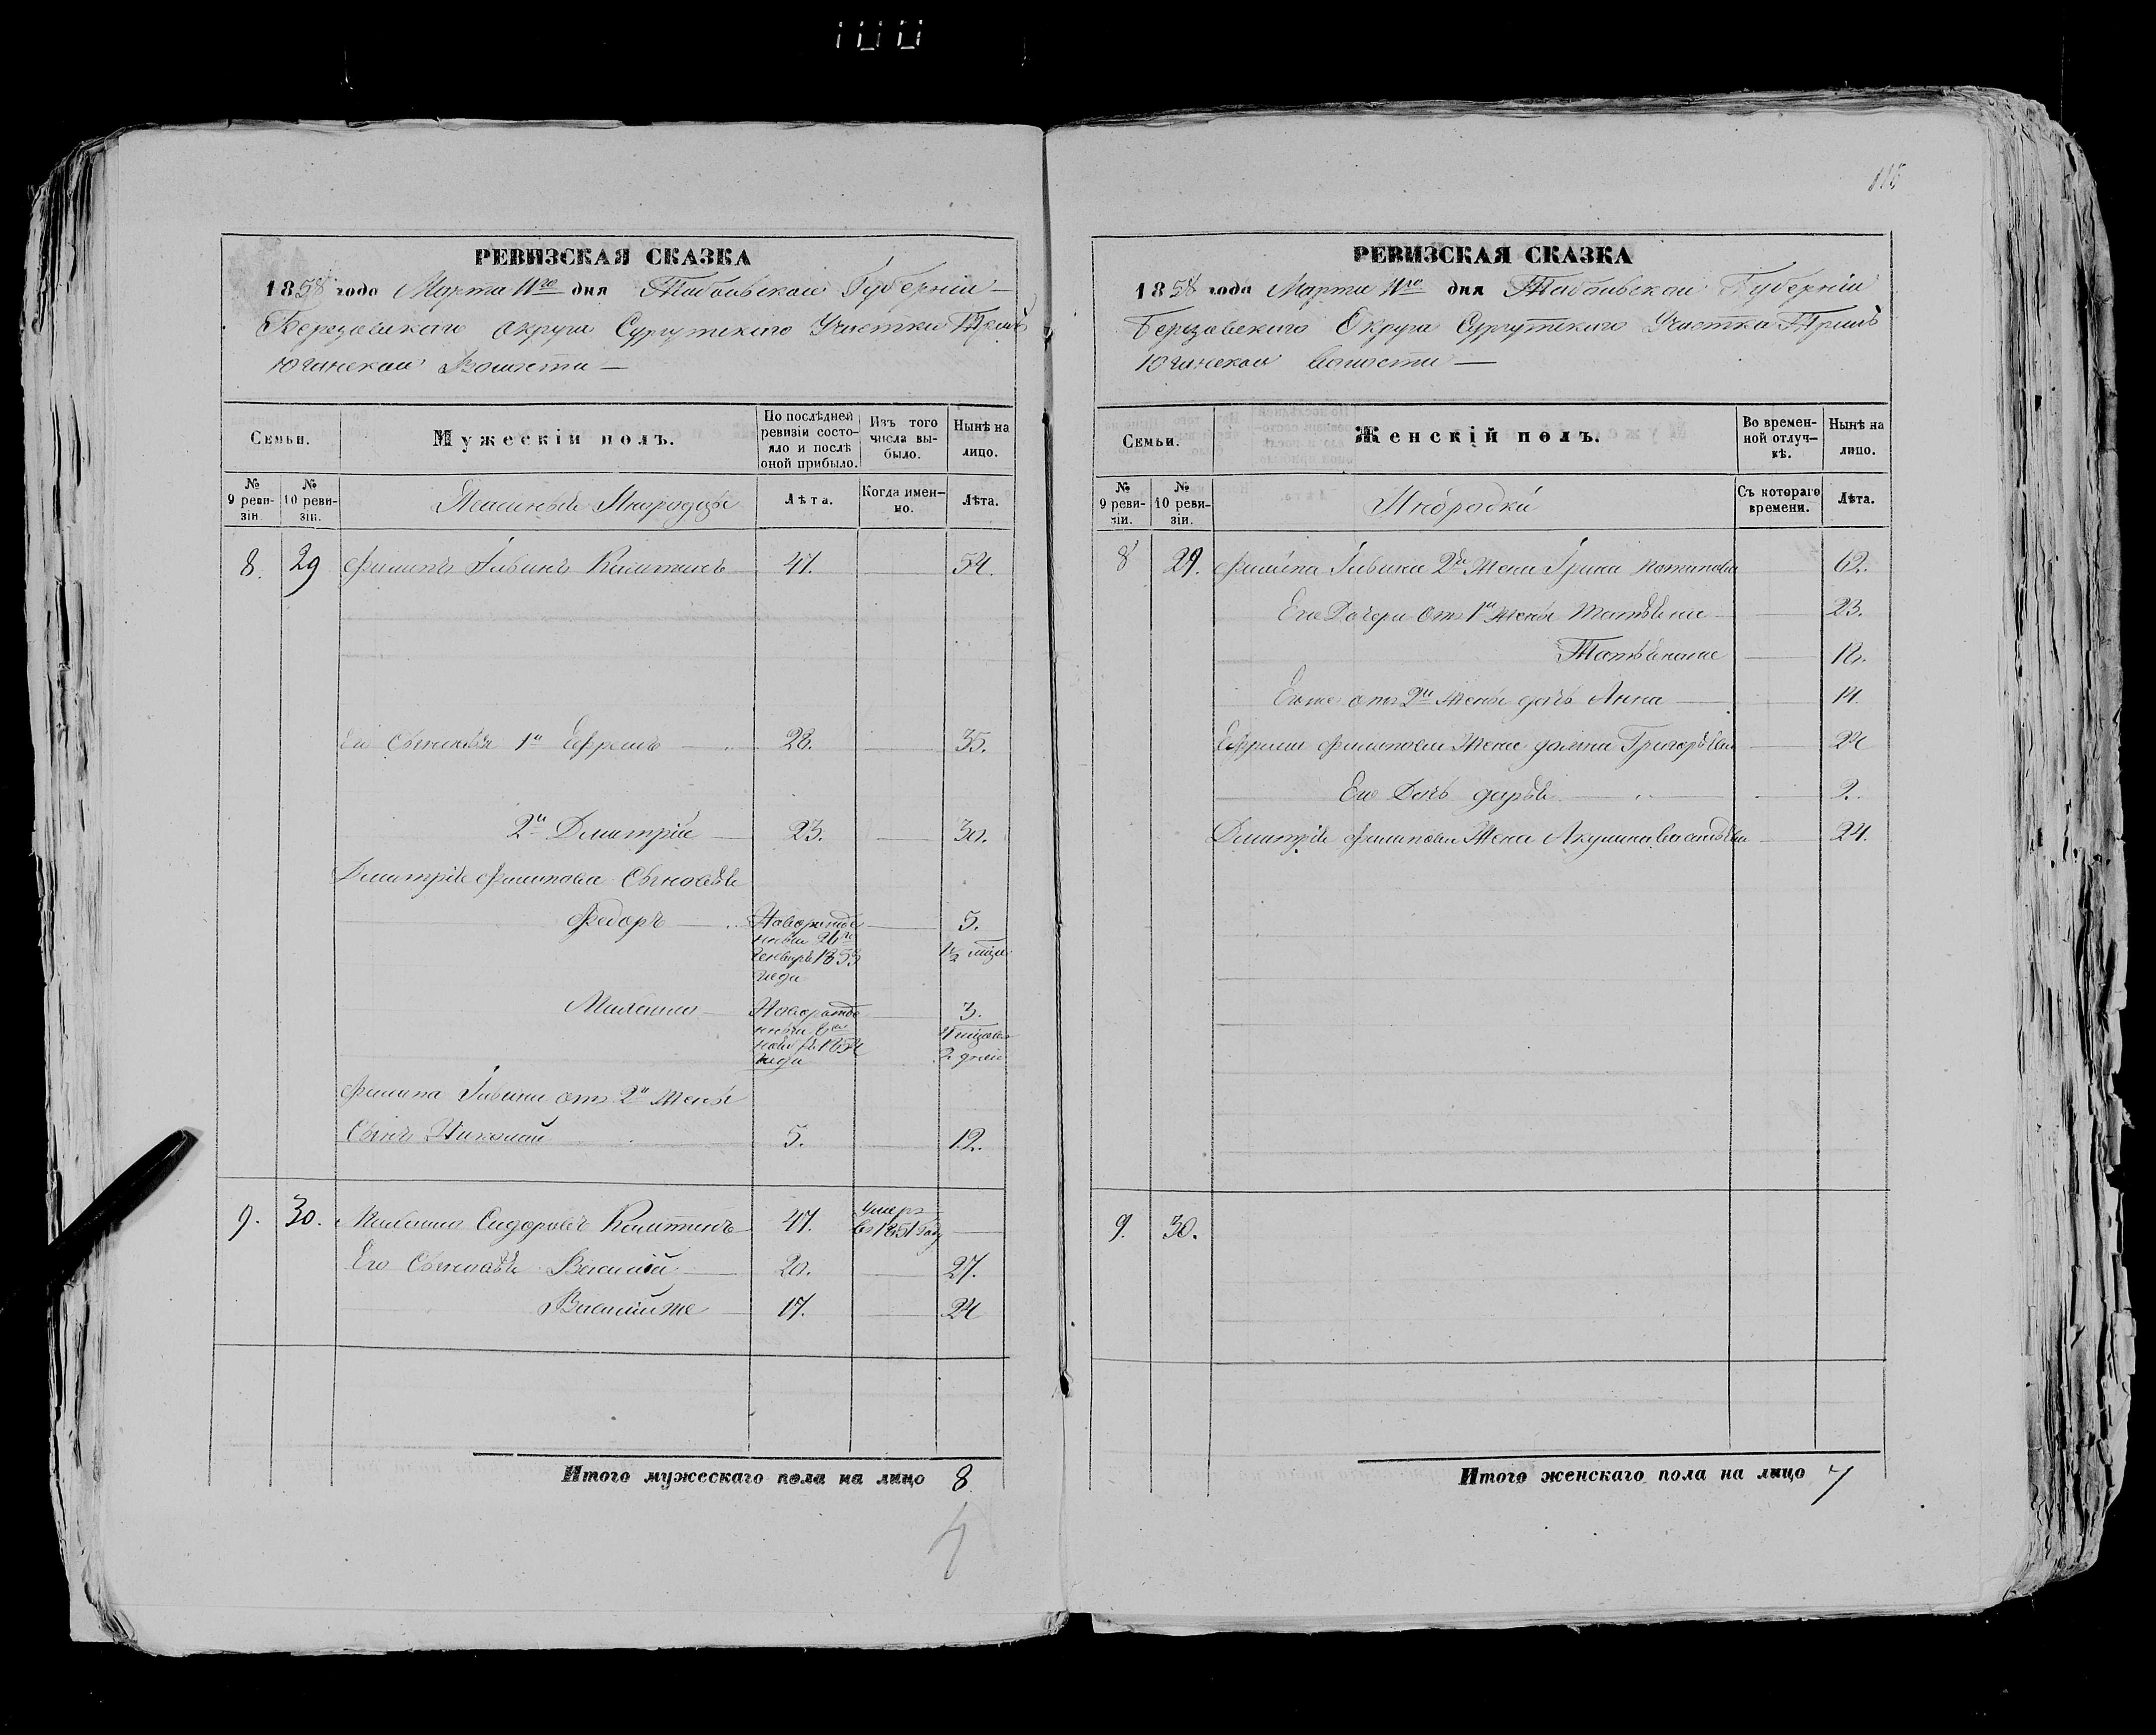 100
РЕВИЗСКАЯ СКАЗКА
1858 года Марта 11го дня Тобольской Губерніи
Березовскаго округа Сургутскаго Участка Тром
Юганской Волости
Семьи.
Мужескій полъ.
По послѣдней ревизіи состояло и послѣ оной прибыло.
Изъ того числа выбыло.
Нынѣ на лицо.
№ 9 ревизіи
№ 10 ревизіи.
Ясашные Инородцы
Лѣта.
Когда именно.
Лѣта.
8. 29 Филипъ 47. 54.
Его Сыновья 1й Ефремъ 28. 35.
2й Дмитрій 23. 30.
Дмитрія Филипова Сыновья
Федоръ Новорожденный 1853 года 5.
Новорожденный 6го 1854 года 3. 4 мѣсяца 2 дней
Филипа от 2й жены
Сынъ Николай 5. 12.
9. 30. Сидоровъ 47. умеръ въ 1851 году
Его Сыновья Василій 20. 27.
Василій же 17. 24
Итого мужескаго пола на лицо 8
4
115
РЕВИЗСКАЯ СКАЗКА
1858 года Марта 11го дня Тобольской Губерніи
Березовскаго Округа Сургутскаго Участка Тром
Юганской волости
Семьи.
Женскій полъ.
Во временной отлучкѣ.
Нынѣ на лицо.
№ 9 ревизіи.
№ 10 ревизіи.
Инородки
Съ котораго времени.
Лѣта.
8 29. Филипа 2я Жена 62.
Его Дочери от 1й жены 23.
12.
Его же от 2й Жены дочь Анна 14.
Ефрема Филипова Жена Григорьева 24
Его Дочь Дарья 2.
Дмитрія Филипова Жена Акулина Васильева 24.
9. 30.
Итого женскаго пола на лицо 7